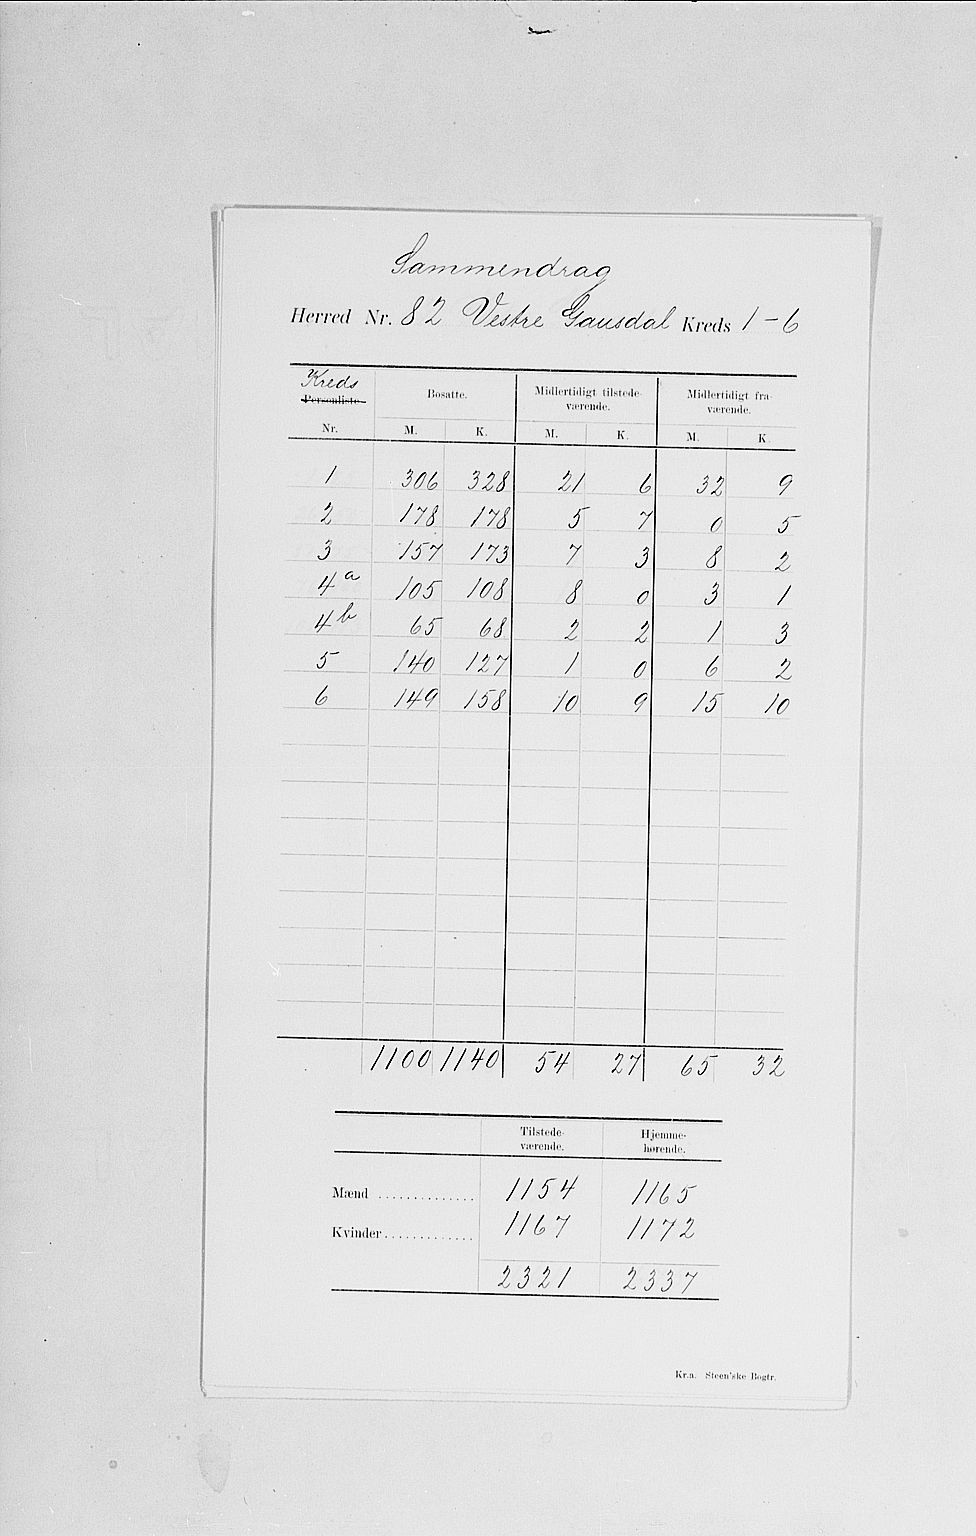 Sammendrag
Herred Nr. 82 Vestre Gausdal Kreds 1-6
Kreds
Personliste Bosatte. Midlertidigt tilstede- Midlertidigt fra-
værende. værende.
Nr. M. K. M. K. M. K.
1 306 328 21 6 32 9
2 178 178 5 7 0 5
3 157 173 7 3 8 2
4a 105 108 8 0 3 1
4b 65 68 2 2 1 3
5 140 127 1 0 6 2
6 149 158 10 9 15 10
1100 1140 54 27 65 32
Tilstede- Hjemme-
værende. hørende.
Mænd .............. 1154 1165
Kvinder............. 1167 1172
2321 2337
Kr.a. Steen'ske Bogtr.